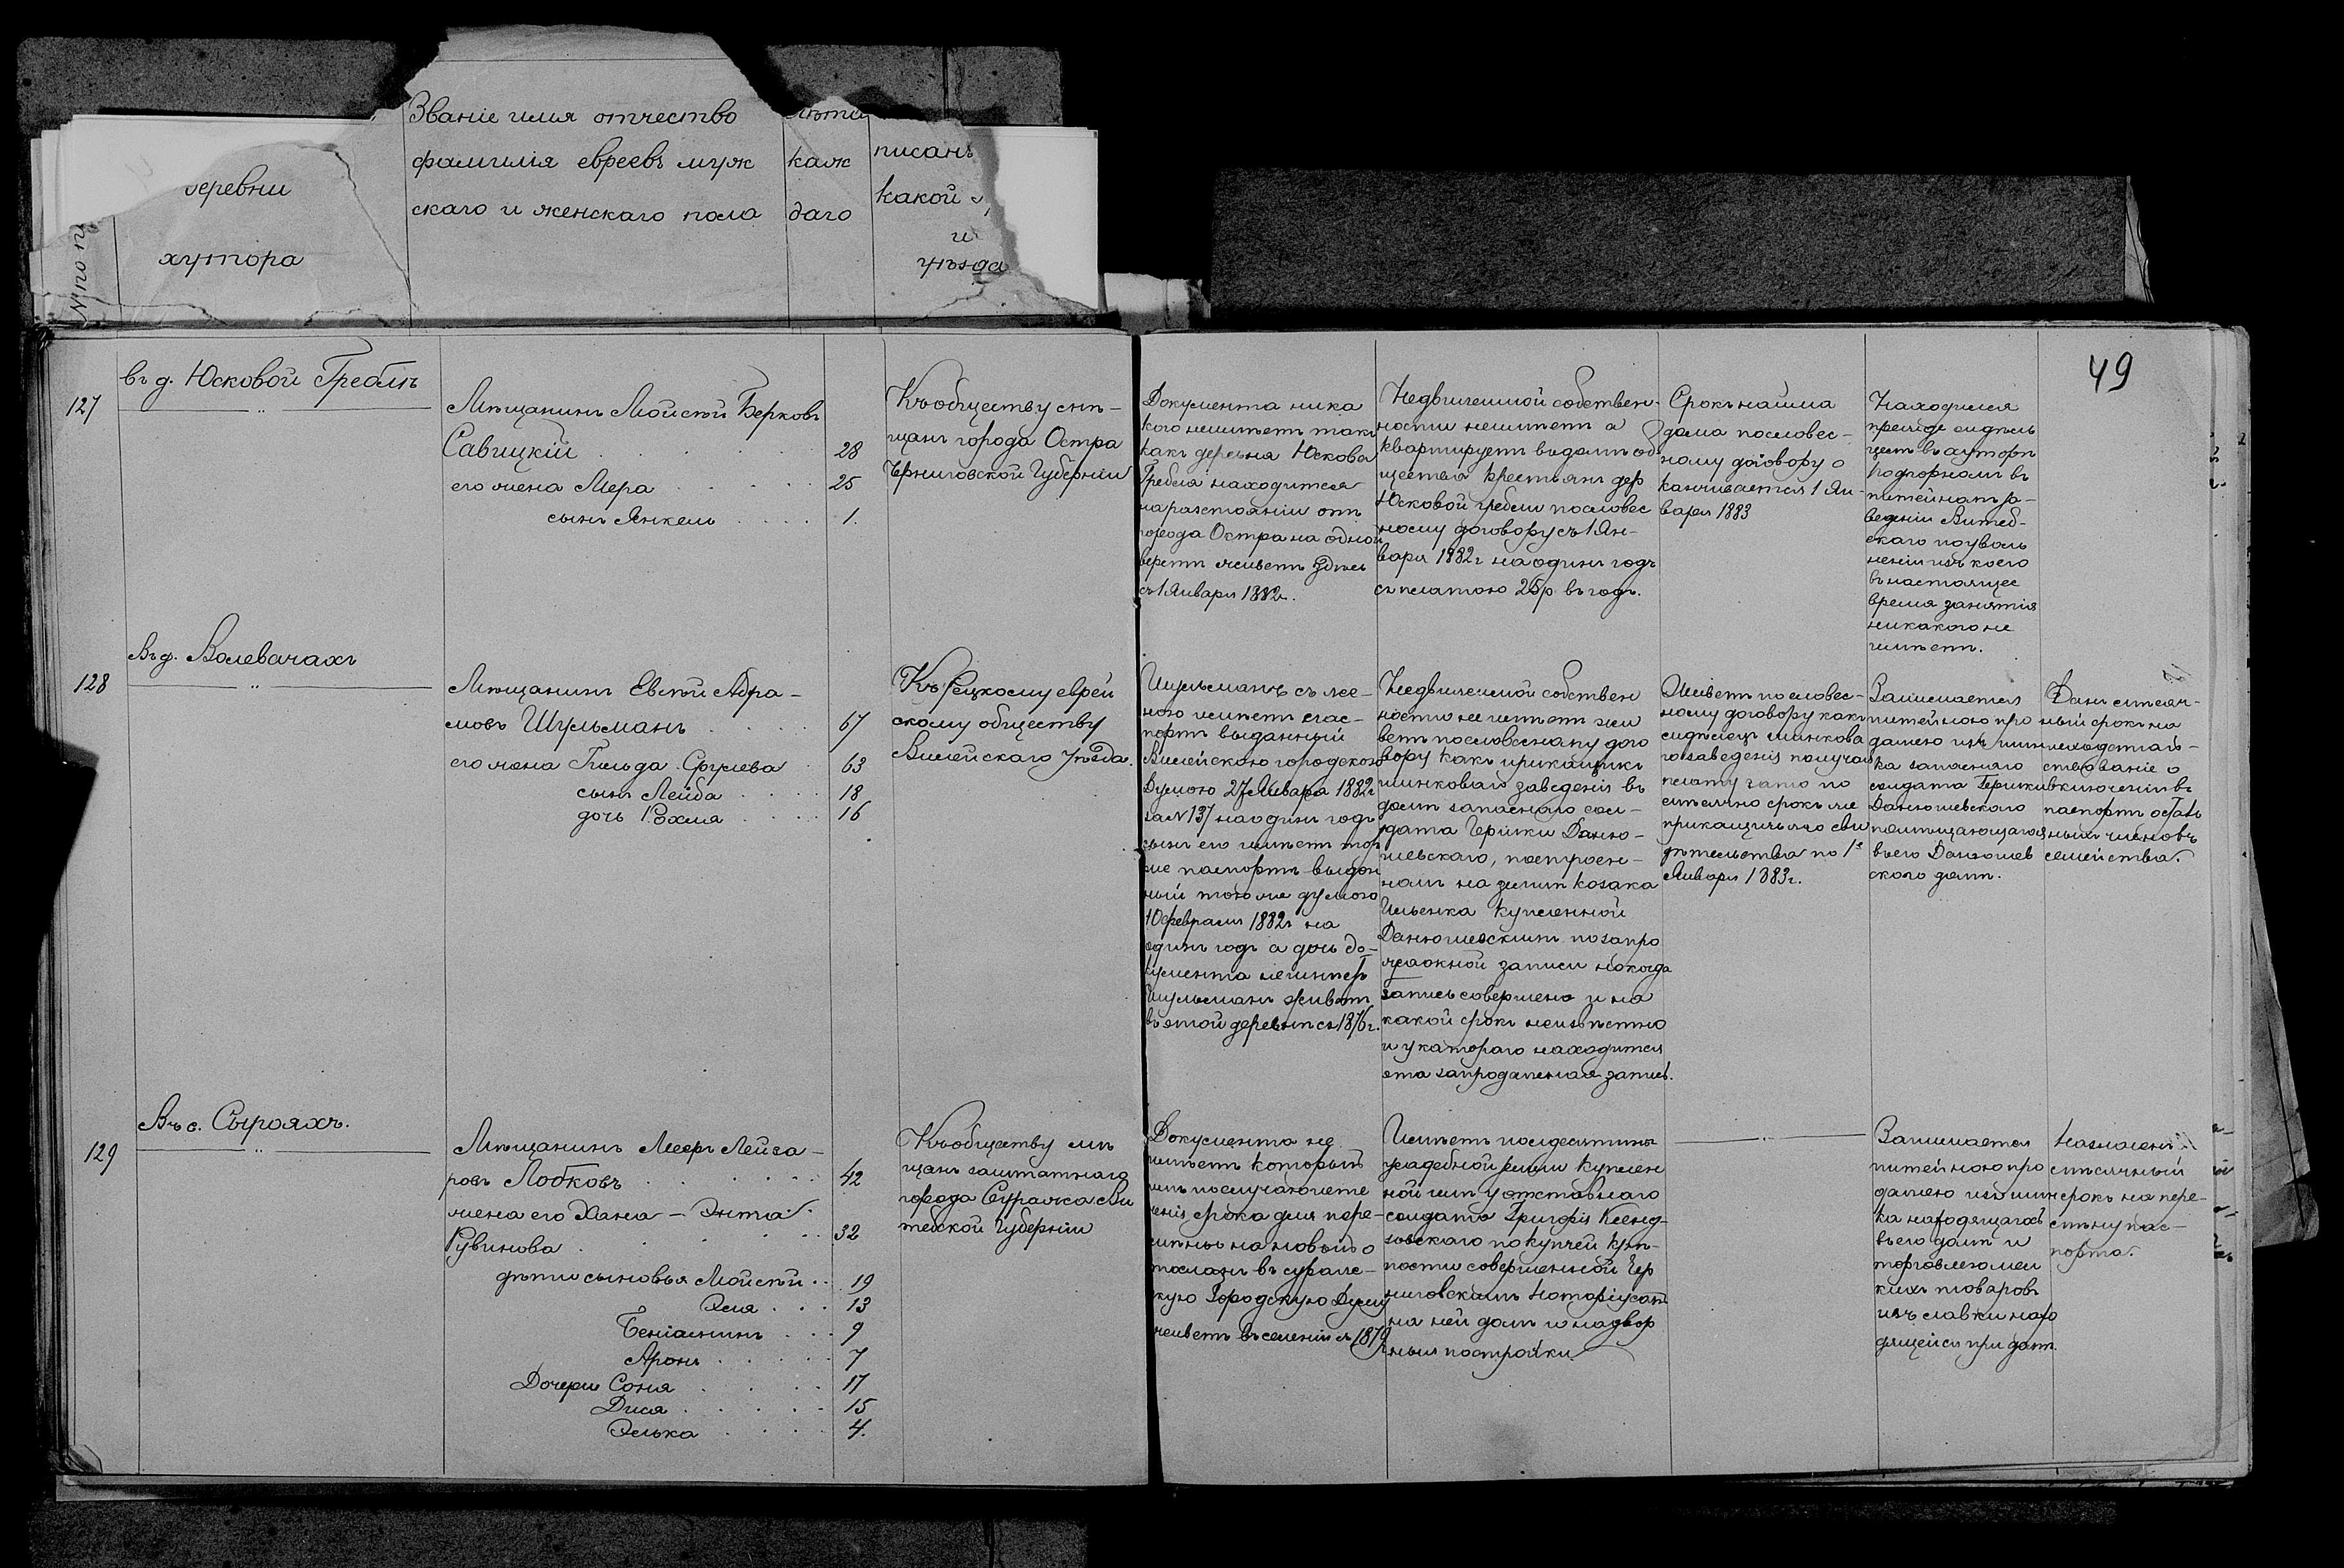 Званіе имя отчество
фамилія евреевъ муж
скаго и женскаго пола
деревни
хутора
каж
даго
писанъ
какой
и
уѣзда
49
въ д. Юсковой Греблѣ
127
Мѣщанинъ Мойсѣй Берковъ
Савицкій 28
его жена Мера 25
сынъ Янкель 1.
Къ обществу мѣ-
щанъ города Остра
Черниговской Губерніи
Документа ника
кого неимѣетъ такъ
какъ деревня Юскова
Гребля находится
на разстояніи отъ
города Остра на одной
верстѣ живетъ здѣсь
съ 1 Января 1882г.
Недвижимой собствен-
ности неимѣетъ а
квартируетъ въ домѣ об
щества крестьянъ дер
Юсковой гребли пословес
ному договору съ 1 Ян-
варя 1882г на одинъ годъ
съ платою 25р въ годъ.
Срокъ найма
дома пословес-
ному договору о
канчивается 1 Ян-
варя 1883
Находился
прежде сидѣль
цемъ въ хуторѣ
Подгорномъ въ
питейномъ за-
веденіи Витеб-
скаго по уволь
неніи изъ коего
въ настоящее
время занятія
никакого не
имѣетъ.
Въ д. Волевачахъ
128
Мѣщанинъ Евсѣй Абра-
мовъ Шульманъ 67
его жена Гильда Срулева 63
сынъ Лейба 18
дочь Рохля 16
Къ Рецкому еврей
скому обществу
Вилейскаго Уѣзда.
Шульманъ съ же-
ною имѣетъ пас-
портъ выданный
Вилейскою городскою
Думою 27 Января 1882г
за № 137 на одинъ годъ
сынъ его имѣетъ тоже
же паспортъ выдан
ный тою же думою
10 февраля 1882г на
одинъ годъ а дочь до-
кумента неимѣетъ
Шульманъ живетъ
въ этой деревнѣ съ 1876г.
Недвижимой собствен
ности не имѣетъ жи
ветъ пословесному дого
вору какъ прикащикъ
шинковаго заведенія въ
домѣ запаснаго сол-
дата Гершки Даню-
шевскаго, построен-
номъ на землѣ козака
Ильенка купленной
Данюшевскимъ по запро
дажной записи но когда
запись совершена и на
какой срокъ неизвѣстно
и у котораго находится
эта запродажная запись.
Живетъ пословес-
ному договору какъ
сидѣлецъ шинкова
го заведенія получая
плату за то по
мѣсячно срокъ же
прикащичьяго сви
дѣтельства по 1е
Января 1883г.
Занимается
питейною про
дажею изъ шин
ка запаснаго
солдата Гершки
Данюшевскаго
помѣщающагося
въ его Данюшев
скаго домѣ.
Данъ мѣсяч-
ный срокъ на
исходатай-
ствованіе о
включеніи въ
паспортъ осталь
ныхъ членовъ
семейства.
Въ с. Сырояхъ.
129
Мѣщанинъ Мееръ Лейза-
ровъ Лобковъ 42
жена его Хана-Энта
Рувинова 32
дѣти сыновья Мойсѣй 19
Эля 13
Беніаминъ 9
Аронъ 7
Дочери Соня 17
Дися 15
Элька 4.
Къ обществу мѣ
щанъ заштатнаго
города Суража Ви
тебской Губерніи
Документа не
имѣетъ который
имъ по случаю исте
ченія срока для пере-
мѣны на новый о
тосланъ въ сураж-
скую Городскую Думу
живетъ въ селеніи съ 1879
Имѣетъ полдесятины
усадебной земли куплен
ной имъ у отставнаго
солдата Григорія Ксенд-
зовскаго по купчей крѣ-
пости совершенной Чер
ниговскимъ Нотаріусомъ
на ней домъ и надвор
ныя постройки
Занимается
питейною про
дажею изъ шин
ка находящагося
въ его домѣ и
торговлею мел
кихъ товаровъ
изъ лавки нахо
дящейся при домѣ.
Назначенъ
мѣсячный
срокъ на пере-
мѣну пас-
порта.